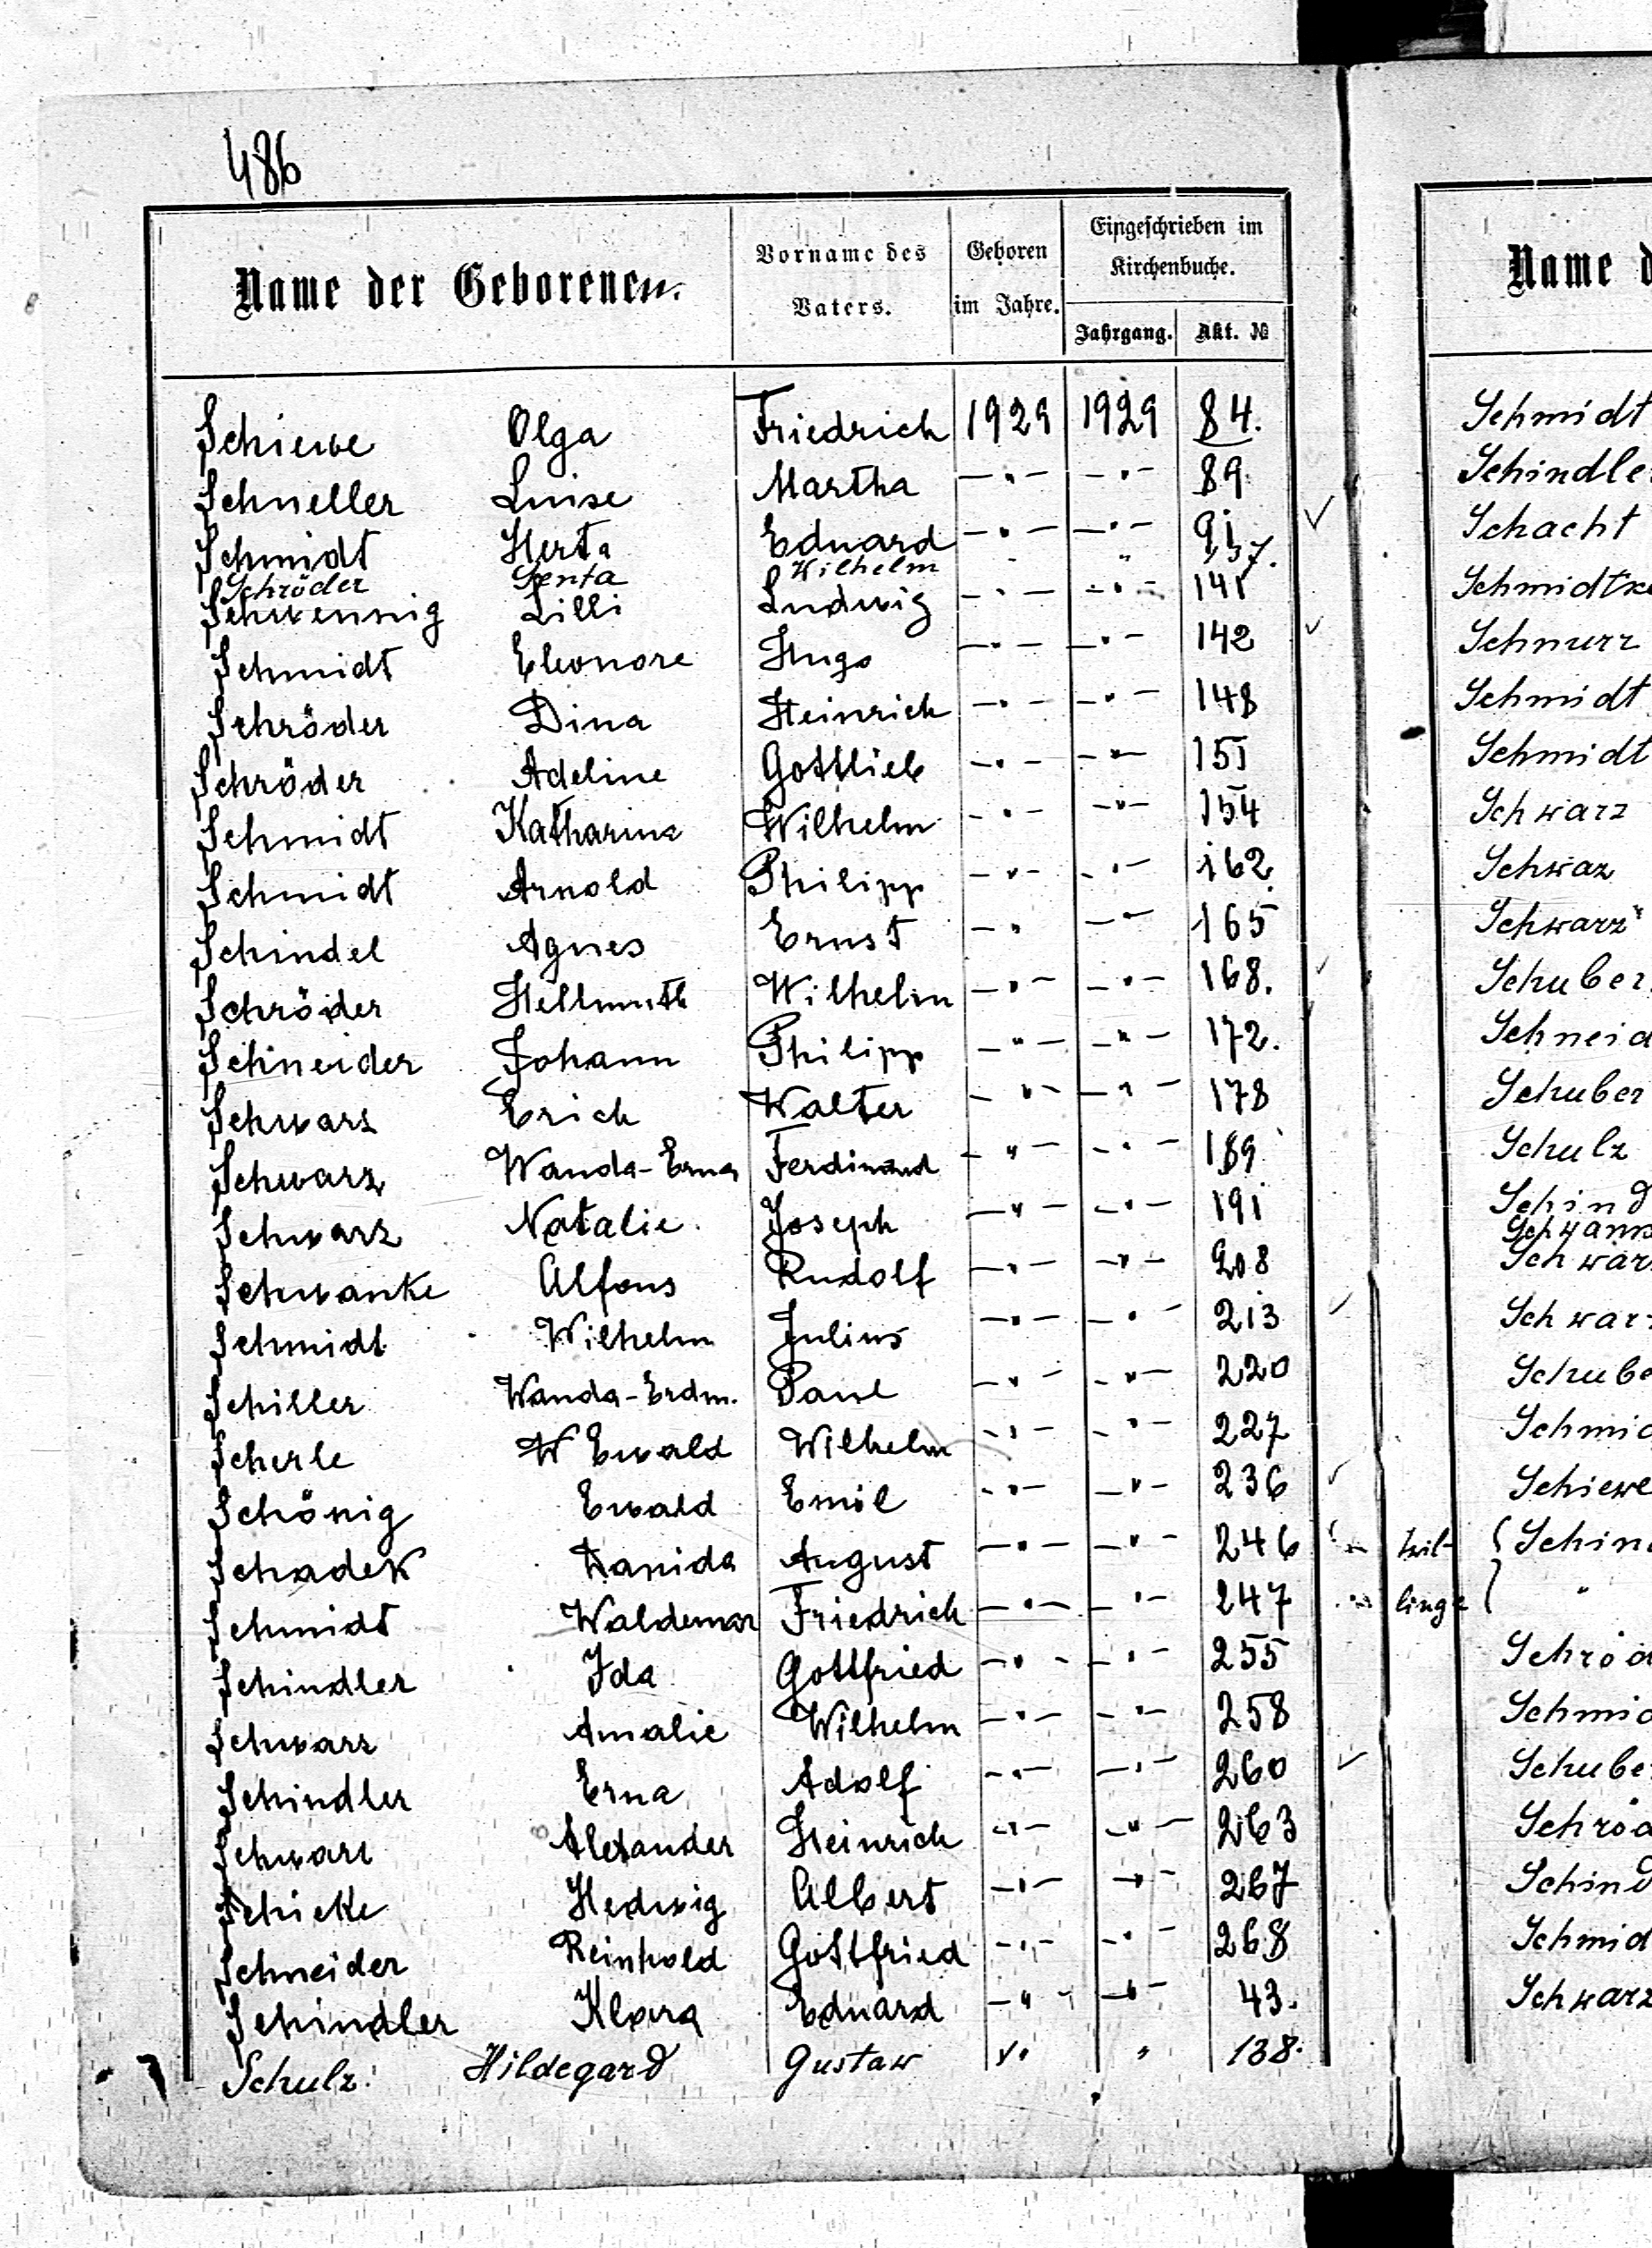 486
Name der Geborenen. Vorname des Vaters. Geboren im Jahre. Eingeschrieben im Kirchenbuche. Jahrgang. Akt. №
Schiewe Olga Friedrich 1929 1929 84.
Schneller Luise Martha -"- -"- 89.
Schmidt Herta Eduard -"- -"- 91
Schröder Senta Wilhelm " " 137.
Schwennig Lilli Ludwig -"- -"- 141
Schmidt Eleonore Hugo -"- -"- 142
Schröder Dina Heinrich -"- -"- 148
Schröder Adeline Gottlieb -"- -"- 151
Schmidt Katharina Wilhelm -"- -"- 154
Schmidt Arnold Philipp -"- -"- 162.
Schindel Agnes Ernst -" -"- 165
Schröder Hellmuth Wilhelm -"- -"- 168.
Schneider Johann Philipp -"- -"- 172.
Schwarz Erich Walter -"- -"- 178
Schwarz Wanda-Erna Ferdinand -"- -"- 189
Schwarz Natalie Joseph -"- -"- 191
Schwanke Alfons Rudolf -"- -"- 208
Schmidt Wilhelm Julius -"- -"- 213
Schiller Wanda-Erdm. Paul -"- -"- 220
Scherle W Ewald Wilhelm -"- -"- 227
Schönig Ewald Emil -"- -"- 236
Schadek August -"- -"- 246
Schmidt Waldemar Friedrich -"- -"- 247
Schindler Ida Gottfried -"- -"- 255
Schwarz Amalie Wilhelm -"- -"- 258
Schindler Erna Adolf -"- -"- 260
Schwarz Alexander Heinrich -"- -"- 263
Schicke Hedwig Albert -"- -"- 267
Schneider Reinhold Gottfried -"- -"- 268
Schindler Klara Eduard -"- -"- 43.
Schulz Hildegard Gustaw " " 138.
Name d
Schmidt
Schindle
Schacht
Schmidtke
Schnurr
Schmidt
Schmidt
Schwarz
Schwaz
Schwarz
Schuber
Schneid
Schuber
Schulz
Schind
Schwank
Schwar
Schwar
Schube
Schmid
Schiewe
twil- { Schin
linge "
Schröd
Schmid
Schube
Schröd
Schind
Schmid
Schwarz